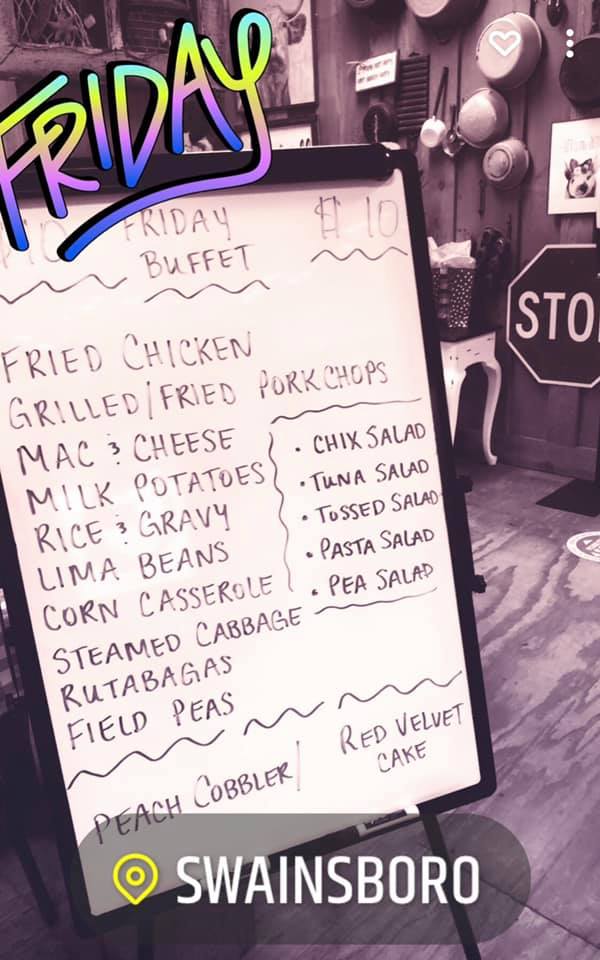 FRIDAY
$10 FRIDAY $10
BUFFET
FRIED CHICKEN
GRILLED/FRIED PORKCHOPS
MAC & CHEESE
MILK POTATOES
RICE & GRAVY
LIMA BEANS
CORN CASSEROLE
STEAMED CABBAGE
RUTABAGAS
FIELD PEAS
• CHIX SALAD
• TUNA SALAD
• TOSSED SALAD
• PASTA SALAD
• PEA SALAD
PEACH COBBLER/
RED VELVET
CAKE
STO
SWAINSBORO